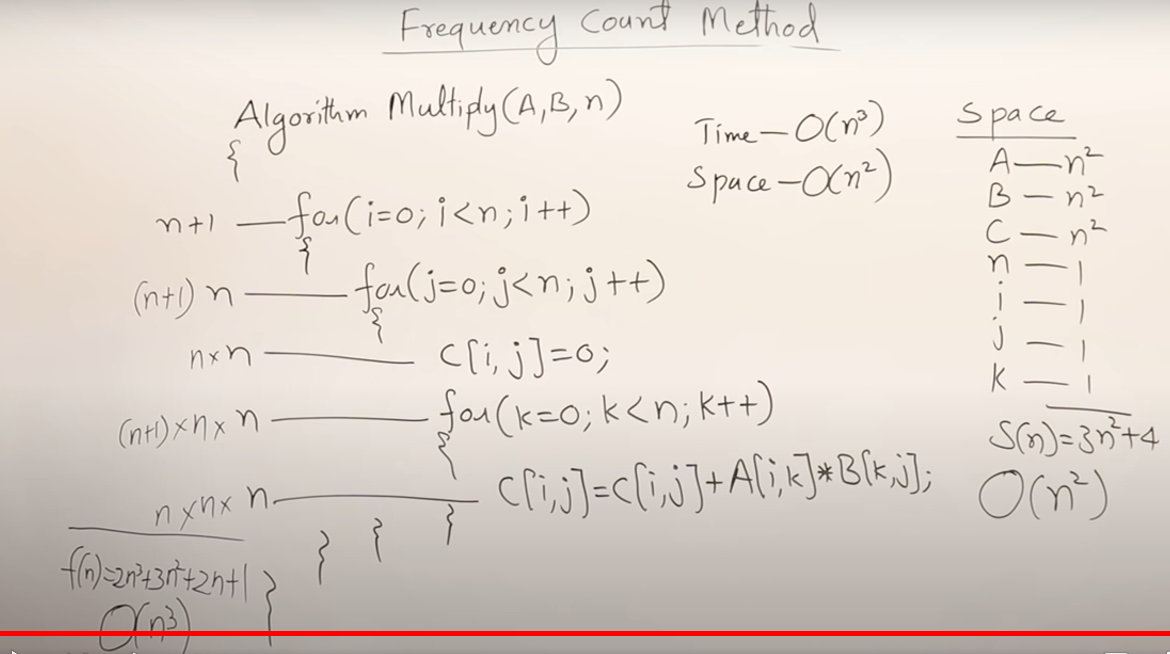 Frequency Count Method
Algorithm Multiply(A,B,n)
{
n+1 — for(i=0; i<n; i++)
{
(n+1) n — for(j=0; j<n; j++)
{
n×n — C[i,j]=0;
(n+1)×n×n — for(k=0; k<n; k++)
{
n×n×n — C[i,j]=C[i,j]+A[i,k]*B[k,j];
}
}
}
f(n)=2n³+3n²+2n+1
}
O(n³)
Time — O(n³)
Space — O(n²)
Space
A — n²
B — n²
C — n²
n — 1
i — 1
j — 1
k — 1
S(n)=3n²+4
O(n²)